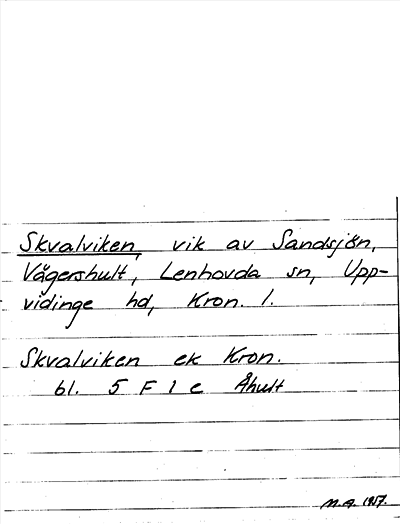 Skvalviken, vik av Sandsjön,
Vågershult, Lenhovda sn, Upp-
vidinge hd, Kron. l.
Skvalviken ek Kron.
bl. 5 F 1 e Åhult
M.A. 1957.